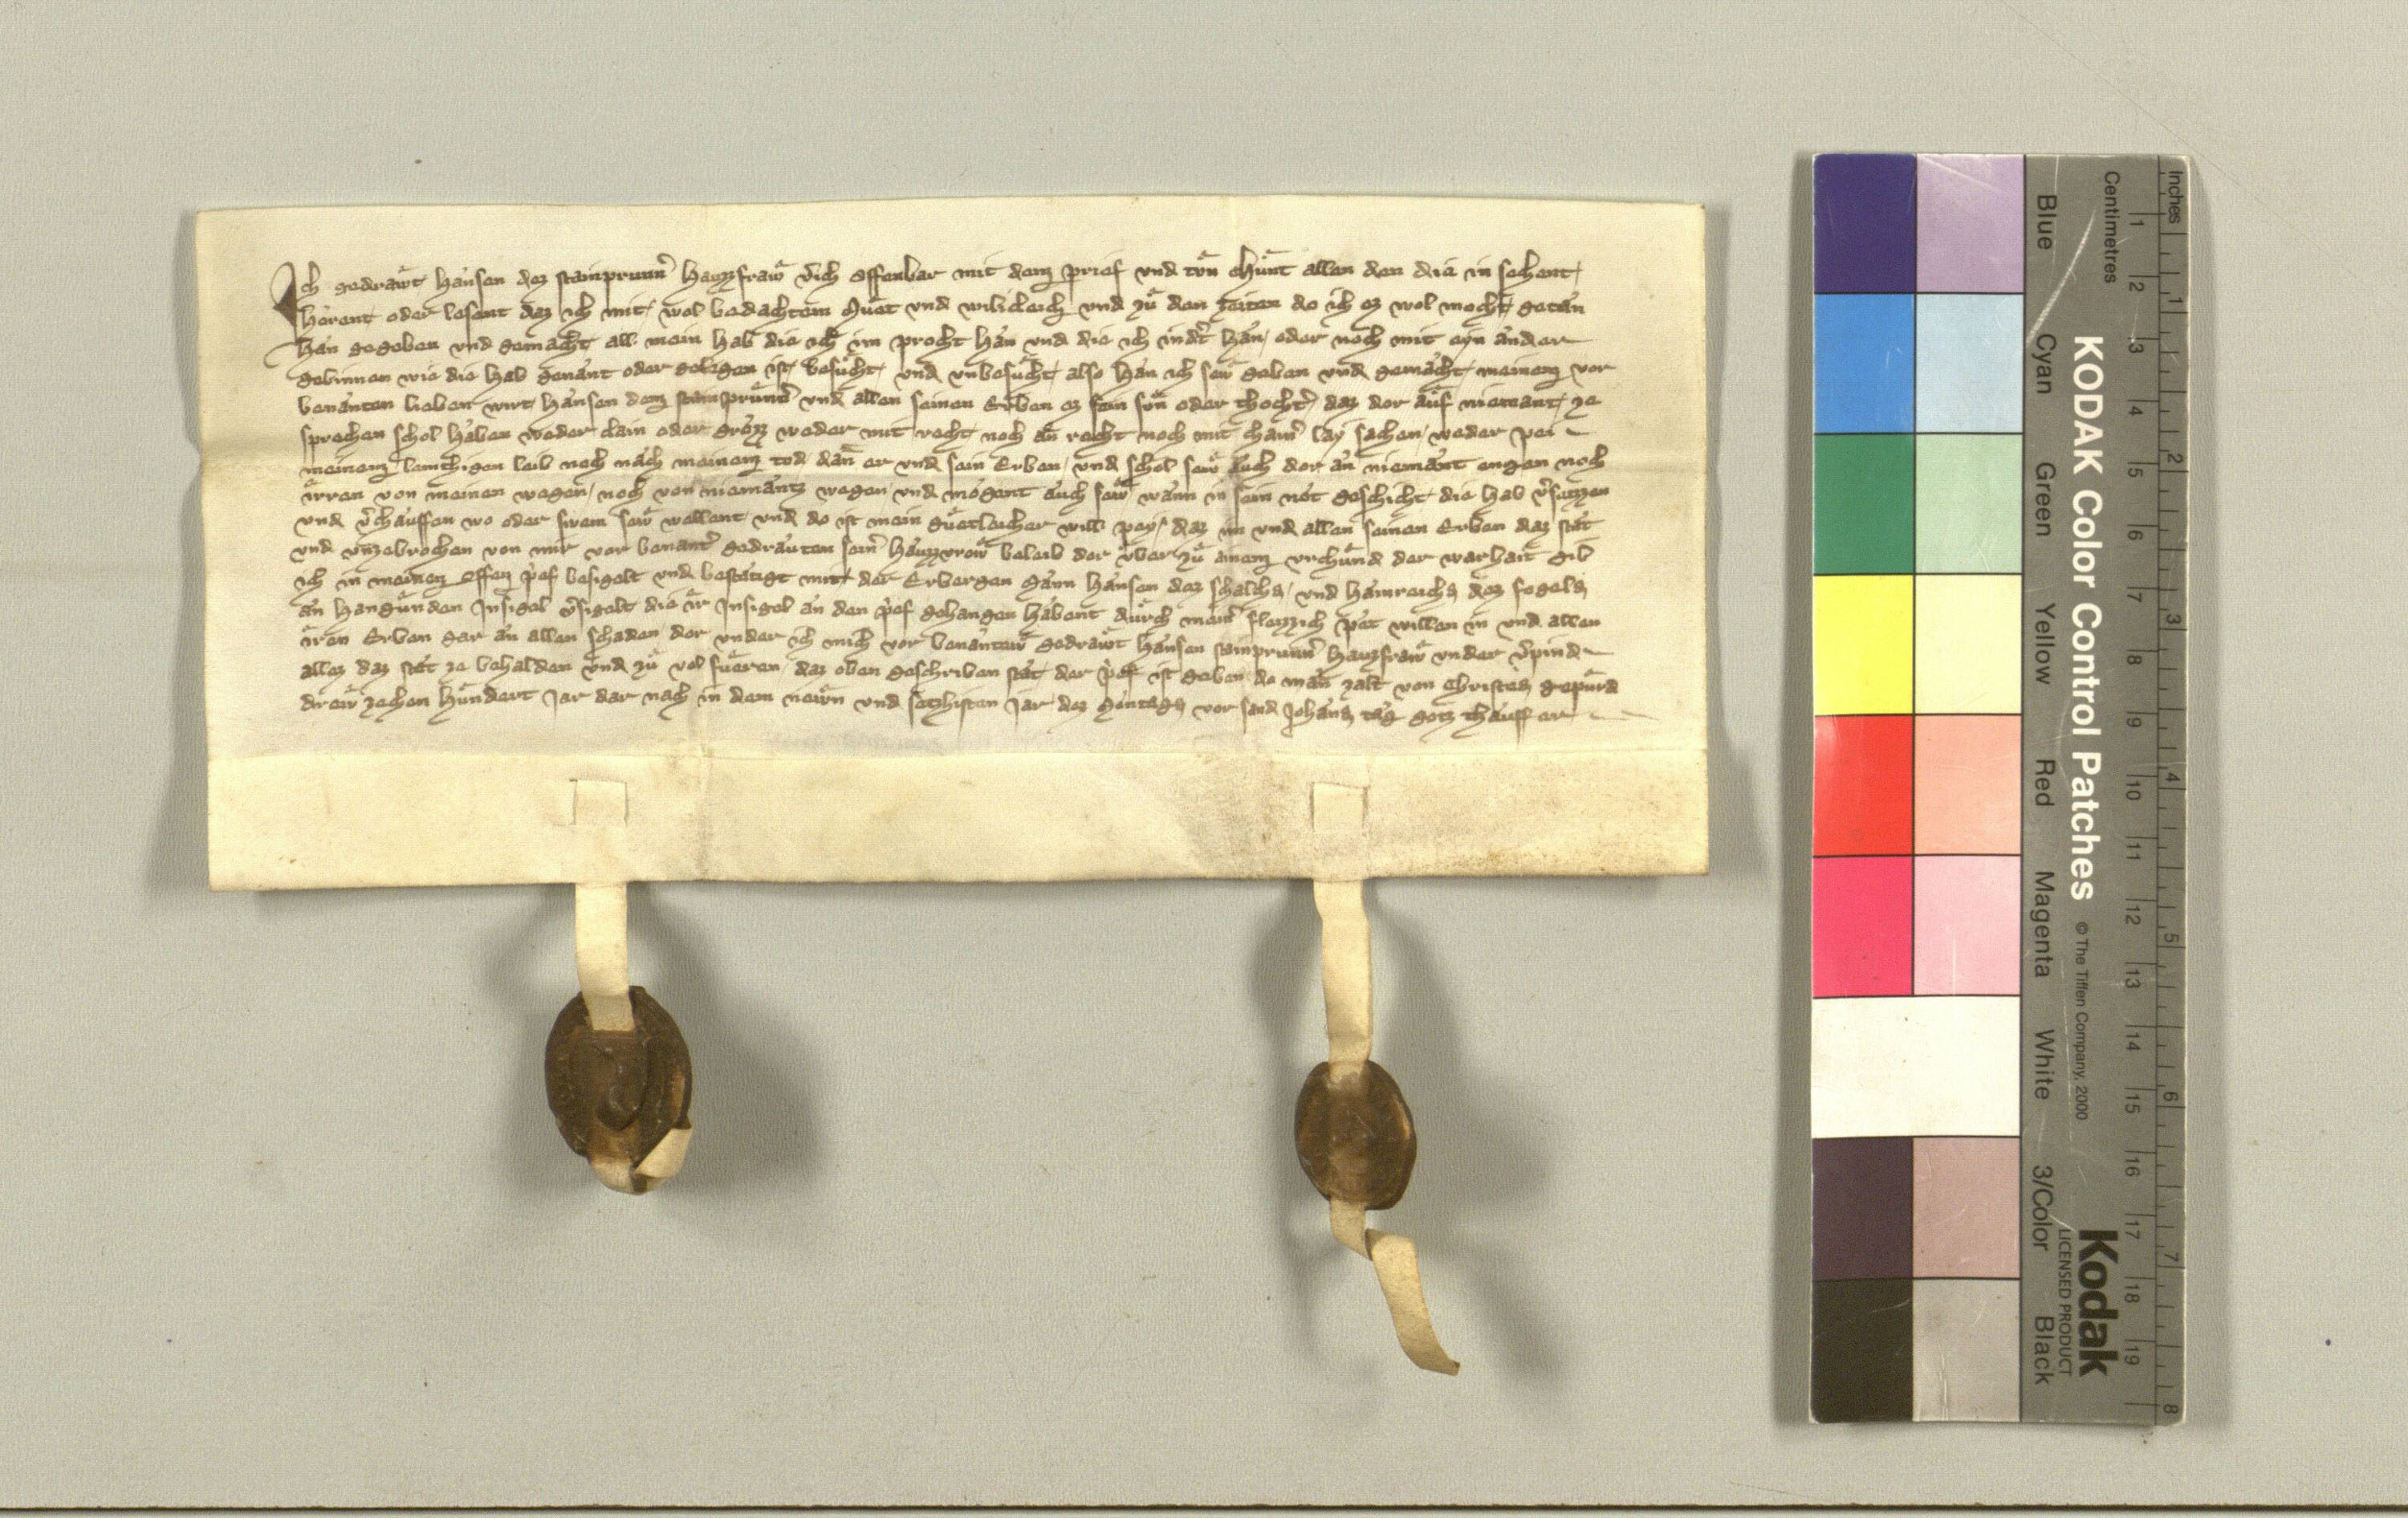 Ich gedrawt hansen dez stainprunn̄ hawzfraw v̄ich offenbar mit dem prief vnd tůn chůnt allen den die in sehent
hörent oder lesent daz ich mit wol bedachtem můt vnd williclich vnd zů den zeiten do ich ez wol mocht getůn
han gegeben vnd gemacht all mein hab die ich im procht han vnd die ich ind̄t han oder noch mit eyn ander
gebinnen wie die hab genant oder gelegen ist besůcht vnd vnbesůcht also han ich sew geben vnd gemacht meinem vor
benanten lieben wirt hansen dem stainprunn̄ vnd allen seinen Erben ez sein sůn oder thocht̄ daz dor auf niemant ze
sprechen schol haben weder clain oder grözz weder mit recht noch an recht noch mit chain̄ lay sachen weder pei
meinem lemthigen leib noch nach meinem tod dan er vnd sein Erben vnd schol sew auch dor an niemant engen noch
irren von meinen wegen noch von niemantz wegen vnd mögent auch sew wann in sein not geschicht die hab v̄setzzen
vnd v̄chauffen wo oder swem sew wellent vnd do ist mein gůtleicher will pey daz im vnd allen seinen Erben daz stät
vnd vnzebrochen von mir vor benant̄ gedrauten sein̄ hauzzvrow beleib dor vber zů ainem vrchůnd der warhait gib
ich in meinen offen p̄ef besigelt vnd bestätigt mit der Erbergen mann hansen dez schalchs vnd hainreichs dez fogels
an hangůnden Insigel v̄sigelt die ir Insigel an den p̄ef gehangen habent durch mein̄ fleizzich pet willen in vnd allen
iren Erben gar an allen schaden dor vnder ich mich vor benantew gedrawt hansen stainprunn̄ hauzfraw vnder v̄pind
allez daz stät ze behalden vnd zů vol fůeren daz oben geschriben stät der p̄ef ist geben do man zalt von Christes gepůrd
drew zehen hůndert Jar dar nach in dem newn vnd setzhisten Jar dez mäntags vor sand Johans tag gotz thauffer
KODAK Color Control Patches © The Tiffen Company, 2000
Kodak
LICENSED PRODUCT
Inches 1 2 3 4 5 6 7 8
Centimetres 1 2 3 4 5 6 7 8 9 10 11 12 13 14 15 16 17 18 19
Blue Cyan Green Yellow Red Magenta White 3/Color Black